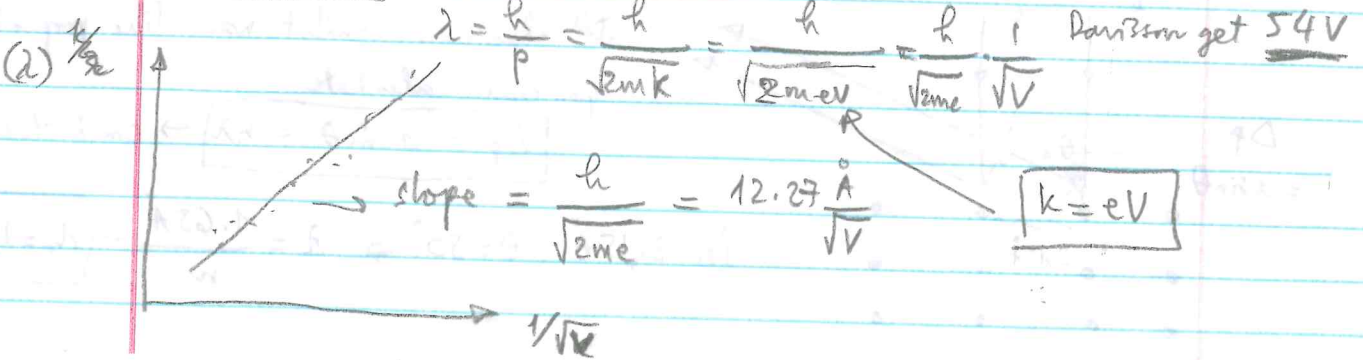 λ = h/p = h/√2mk = h/√2m·eV = h/√2me · 1/√V Davisson get 54V
(λ)
→ slope = h/√2me = 12.27 Å/√V
k = eV
1/√V